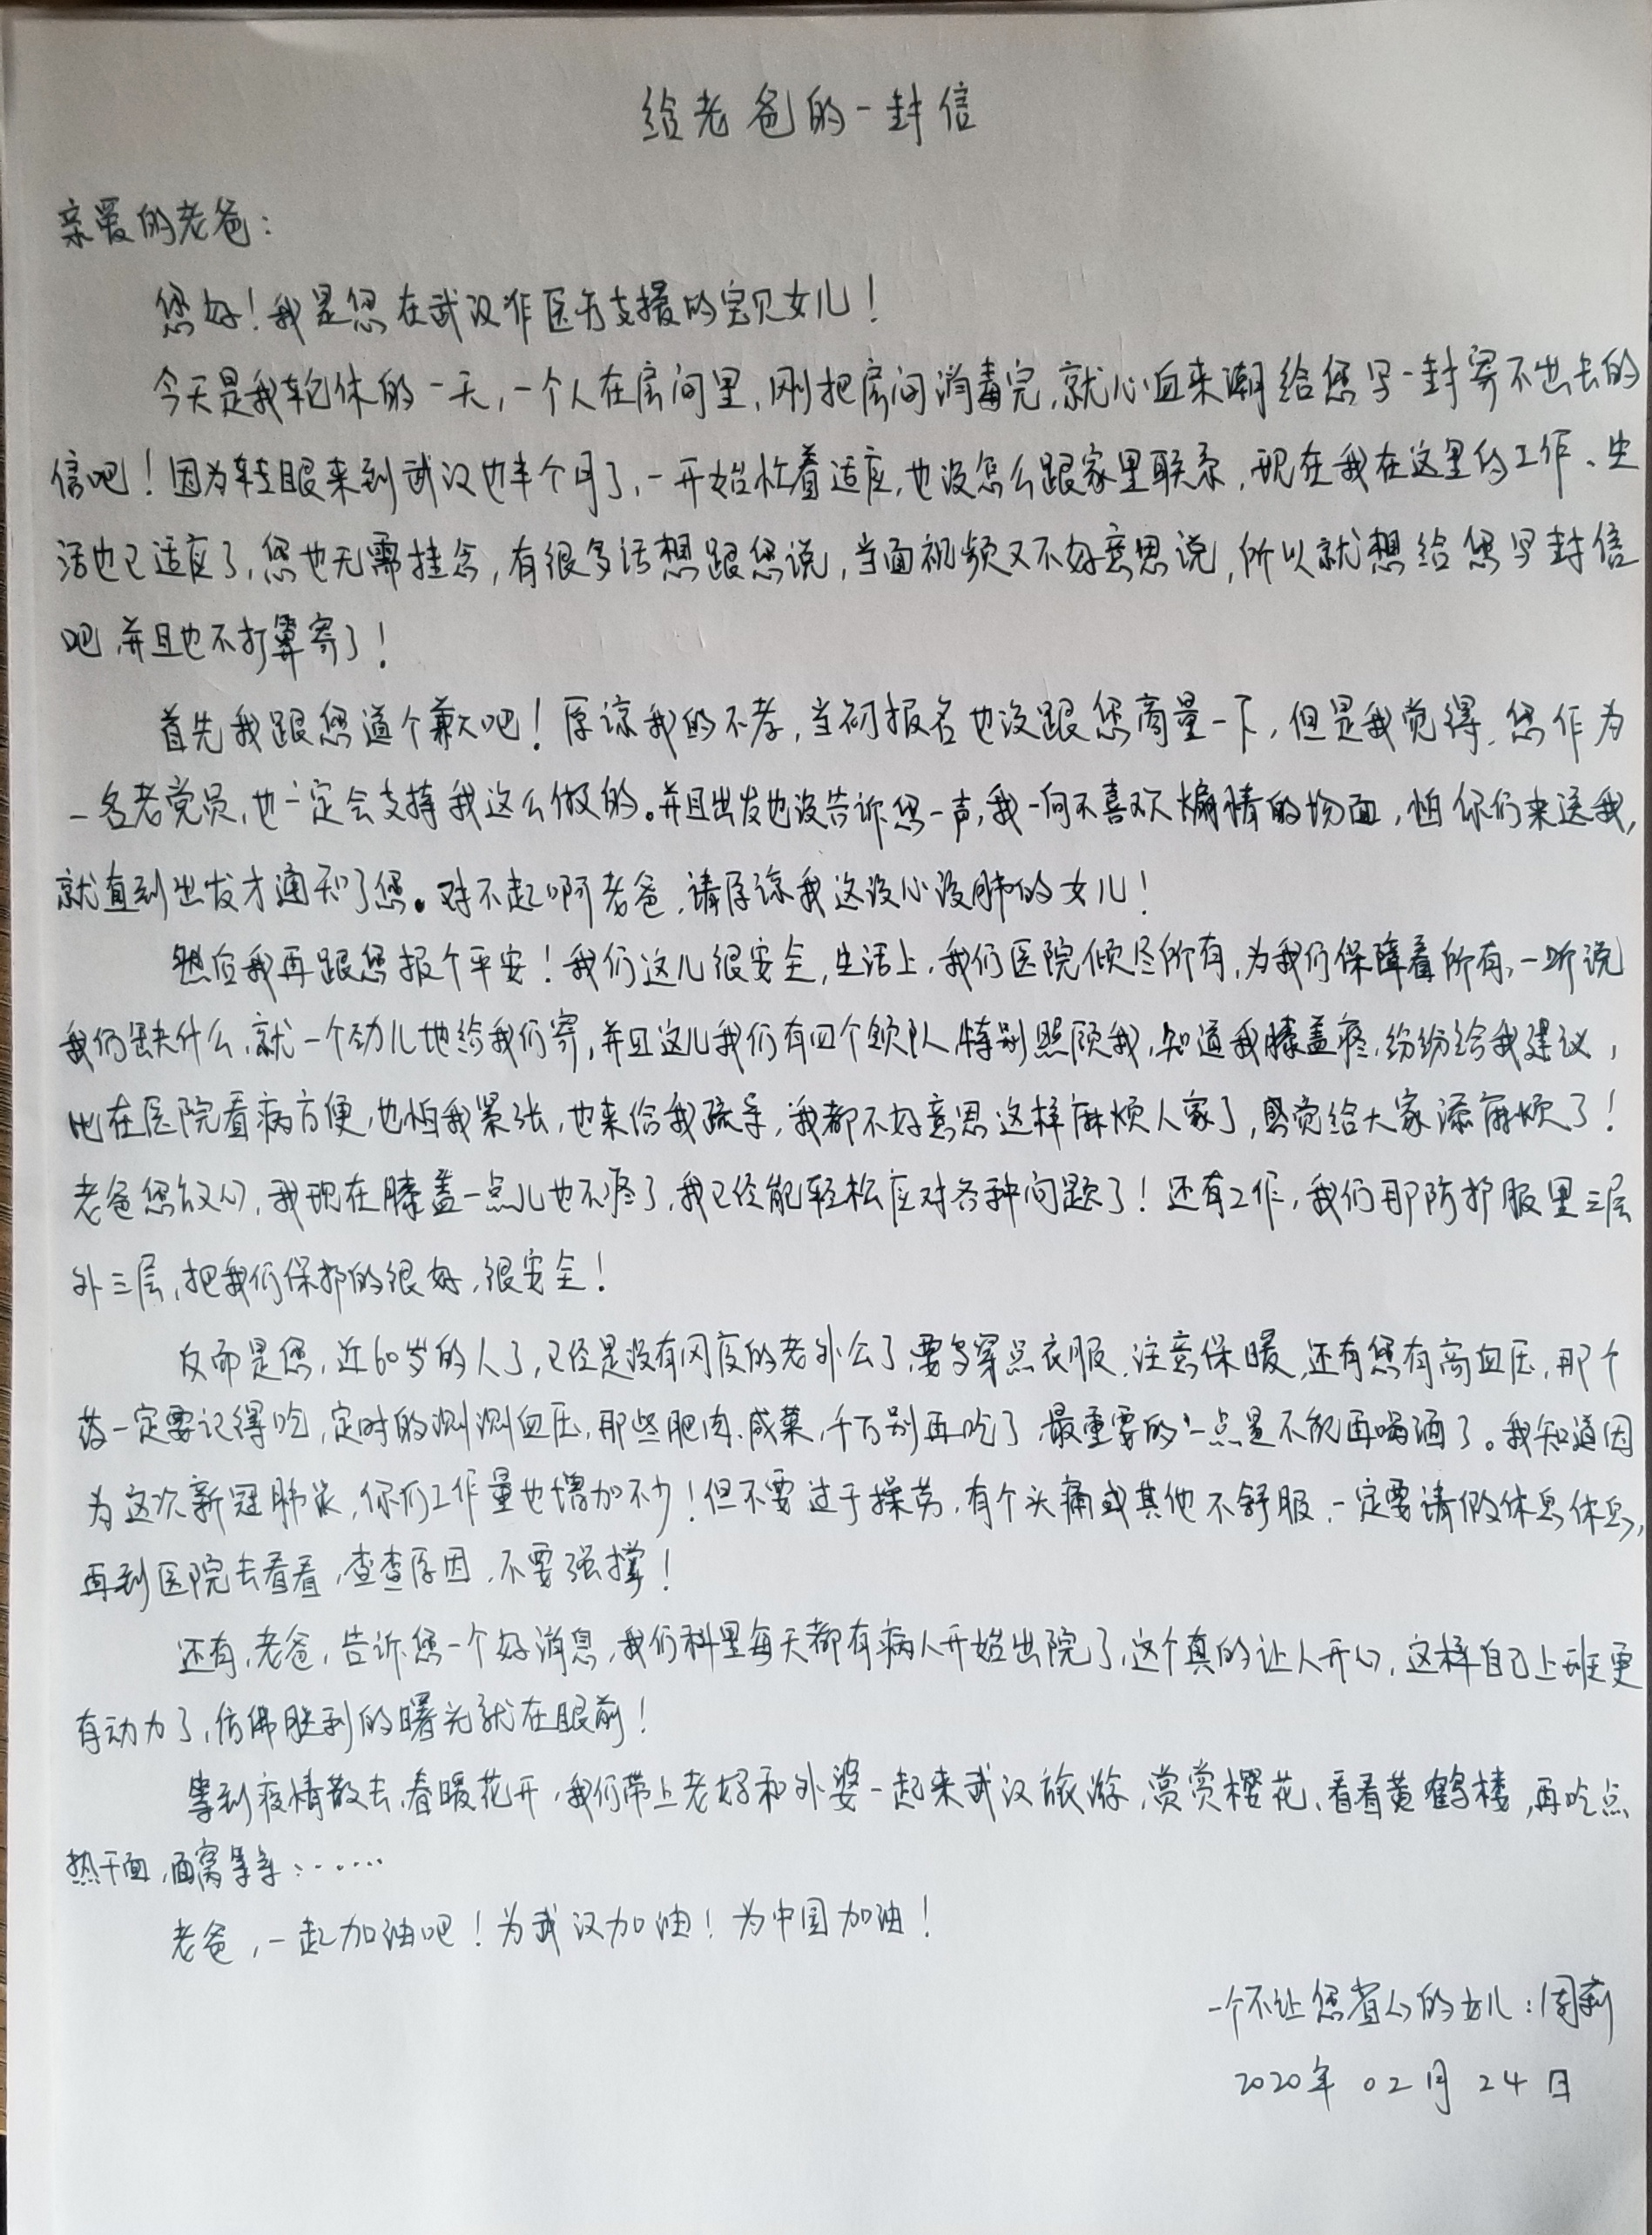 给老爸的一封信
亲爱的老爸：
您好！我是您在武汉作医疗支援的宝贝女儿！
今天是我轮休的一天，一个人在房间里，刚把房间消毒完，就心血来潮给您写一封寄不出去的
信吧！因为转眼来到武汉也半个月了，一开始忙着适应，也没怎么跟家里联系，现在我在这里的工作、生
活也已适应了，您也无需挂念，有很多话想跟您说，当面视频又不好意思说，所以就想给您写封信
吧，并且也不打算寄了！
首先我跟您道个歉吧！原谅我的不孝，当初报名也没跟您商量一下，但是我觉得，您作为
一名老党员，也一定会支持我这么做的。并且出发也没告诉您一声，我一向不喜欢煽情的场面，怕你们来送我，
就直到出发才通知了您。对不起啊老爸，请原谅我这没心没肺的女儿！
然后我再跟您报个平安！我们这儿很安全，生活上，我们医院倾尽所有，为我们保障着所有，一听说
我们缺什么，就一个劲儿地给我们寄，并且这儿我们有四个领队，特别照顾我，知道我膝盖疼，纷纷给我建议，
比在医院看病方便，也怕我紧张，也来给我疏导，我都不好意思这样麻烦人家了，感觉给大家添麻烦了！
老爸您放心，我现在膝盖一点儿也不疼了，我已经能轻松应对各种问题了！还有工作，我们那防护服里三层
外三层，把我们保护的很好，很安全！
反而是您，近60岁的人了，已经是没有风度的老外公了，要多穿点衣服，注意保暖，还有您有高血压，那个
药一定要记得吃，定时的测测血压，那些肥肉、咸菜，千万别再吃了，最重要的一点是不能再喝酒了。我知道因
为这次新冠肺炎，你们工作量也增加不少！但不要过于操劳，有个头痛或其他不舒服，一定要请假休息休息，
再到医院去看看，查查原因，不要强撑！
还有，老爸，告诉您一个好消息，我们科里每天都有病人开始出院了，这个真的让人开心，这样自己上班更
有动力了，仿佛胜利的曙光就在眼前！
等到疫情散去，春暖花开，我们带上老妈和外婆一起来武汉旅游，赏赏樱花、看看黄鹤楼，再吃点
热干面，面窝等等……
老爸，一起加油吧！为武汉加油！为中国加油！
一个不让您省心的女儿：周莉
2020年02月24日